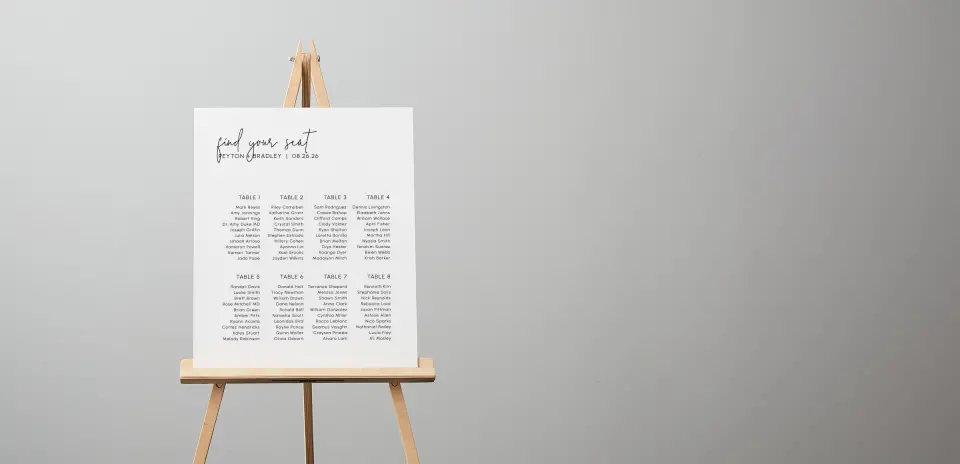 find your seat
PEYTON + BRADLEY | 08.26.26
TABLE 1
Mark Reyes
Amy Jennings
Robert King
Dr. Amy Duke MD
Joseph Griffin
Julia Nelson
Kameron Powell
Nathan Tanner
Jada Pope
TABLE 2
Riley Campben
Katherine Grant
Keith Sanders
Crystal Smith
Thomas Dunn
Stephen Estrada
Hillary Cohen
Ayanna Lin
Kael Brooks
Jayden Wilkins
TABLE 3
Sam Rodriguez
Cassie Bishop
Clifford Camps
Cindy Valdez
Ryan Shelton
Lorretta Bonilla
Brian Melton
Diya Hester
Rodrigo Dyer
Madalynn Mitch
TABLE 4
Dennis Livingston
Elizabeth Johns
William Wallace
April Fisher
Joseph Leon
Martha Hill
Nyasia Smith
Ibrahim Suarez
Belen Webb
Krish Barker
TABLE 5
Randall Davis
Louise Smith
Brett Brown
Rose Mitchell MD
Brian Green
Amber Pitts
Ryann Acosta
Cortez Hendricks
Haley Stuart
Melody Robinson
TABLE 6
Donald Hall
Tracy Newman
William Brown
Dana Nelson
Ronald Bell
Natashe Scott
Leonidas Bird
Rayne Ponce
Quinn Miller
Olivia Osborn
TABLE 7
Terrance Shepard
Melissa Jones
Shawn Smith
Anne Clark
William Gonzalez
Cynthia Miller
Rocco Leblanc
Seamus Vaughn
Grayson Pineda
Alvaro Lam
TABLE 8
Kenneth Kim
Stephanie Soliz
Nick Reynolds
Rebecca Love
Jason Pittman
Ashlee Allen
Nico Sparks
Nathaniel Bailey
Lucia Frey
Ali Mosley